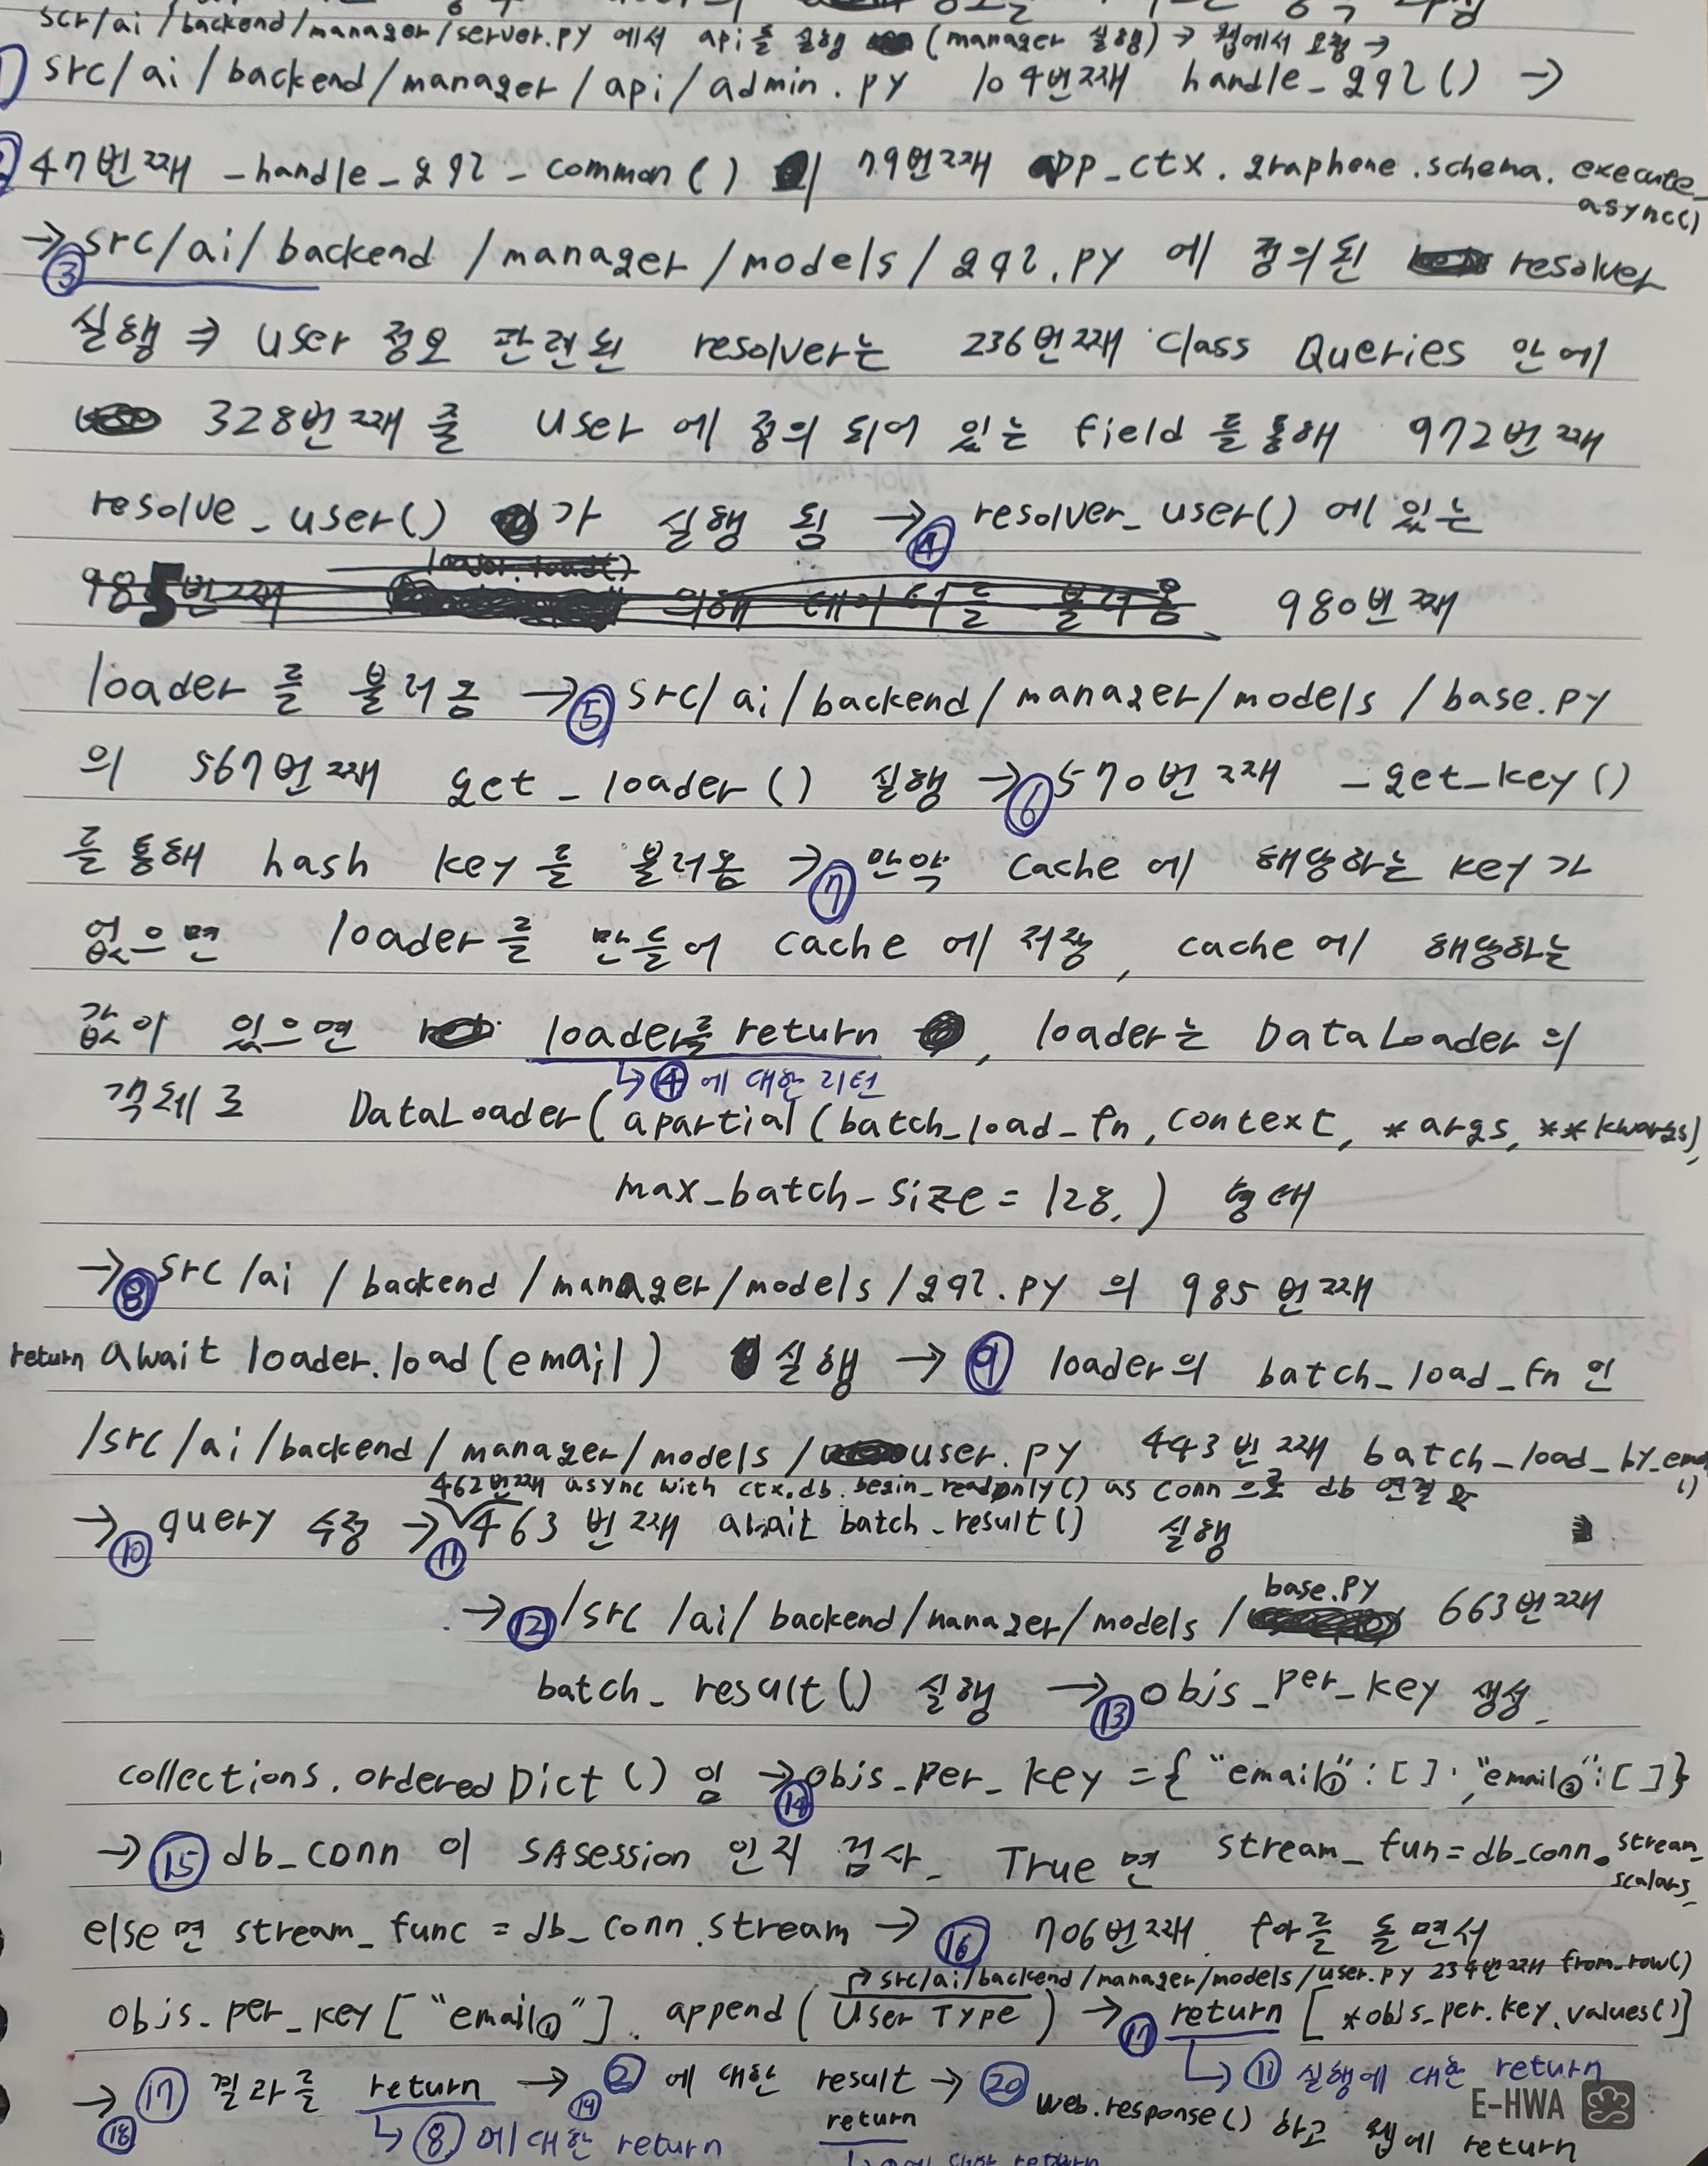 scr/ai/backend/manager/server.py 에서 api를 실행 (manager 실행) → 웹에서 요청 →
1) src/ai/backend/manager/api/admin.py 104번째 handle_gql() →
47번째 _handle_gql_common() 의 79번째 app_ctx.graphene.schema.execute_
async()
→ ③ src/ai/backend/manager/models/gql.py 에 정의된 resolver
실행 ⇒ user 정보 관련된 resolver는 236번째 class Queries 안에
328번째 줄 user 에 정의 되어 있는 field 를 통해 972번째
resolve_user() 가 실행 됨 → ④ resolver_user() 에 있는
loader.load()
985번째 의해 데이터를 불러옴 980번째
loader 를 불러옴 → ⑤ src/ai/backend/manager/models/base.py
의 567번째 get_loader() 실행 → ⑥ 570번째 _get_key()
를 통해 hash key를 불러옴 → ⑦ 만약 cache 에 해당하는 key가
없으면 loader를 만들어 cache 에 저장, cache에 해당하는
값이 있으면 loader를 return, loader는 DataLoader의
↳ ④ 에 대한 리턴
객체로 DataLoader(apartial(batch_load_fn, context, *args, **kwargs),
max_batch_size=128,) 형태
→ ⑧ src/ai/backend/manager/models/gql.py 의 985번째
return await loader.load(email) 실행 → ⑨ loader의 batch_load_fn 인
/src/ai/backend/manager/models/user.py 443번째 batch_load_by_email
()
462번째 async with ctx.db.begin_readonly() as conn으로 db 연결 후
→ ⑩ query 수정 → ⑪ 463번째 await batch_result() 실행
base.py
→ ⑫ /src/ai/backend/manager/models/ 663번째
batch_result() 실행 → ⑬ objs_per_key 생성
collections.orderedDict() 임 → ⑭ objs_per_key = { "email①":[], "email②":[]}
→ ⑮ db_conn 이 SAsession 인지 검사. True 면 stream_fun=db_conn.stream_
scalars
else면 stream_func = db_conn.stream → ⑯ 706번째 for를 돌면서
↱ src/ai/backend/manager/models/user.py 234번째 from_row()
objs_per_key["email①"].append(User Type) → ⑰ return [*objs_per_key.values()]
↳ ⑪ 실행에 대한 return
→ ⑱ ⑰ 결과를 return → ⑲ ② 에 대한 result → ⑳ web.response() 하고 웹에 return
return
↳ ⑧ 에 대한 return
E-HWA